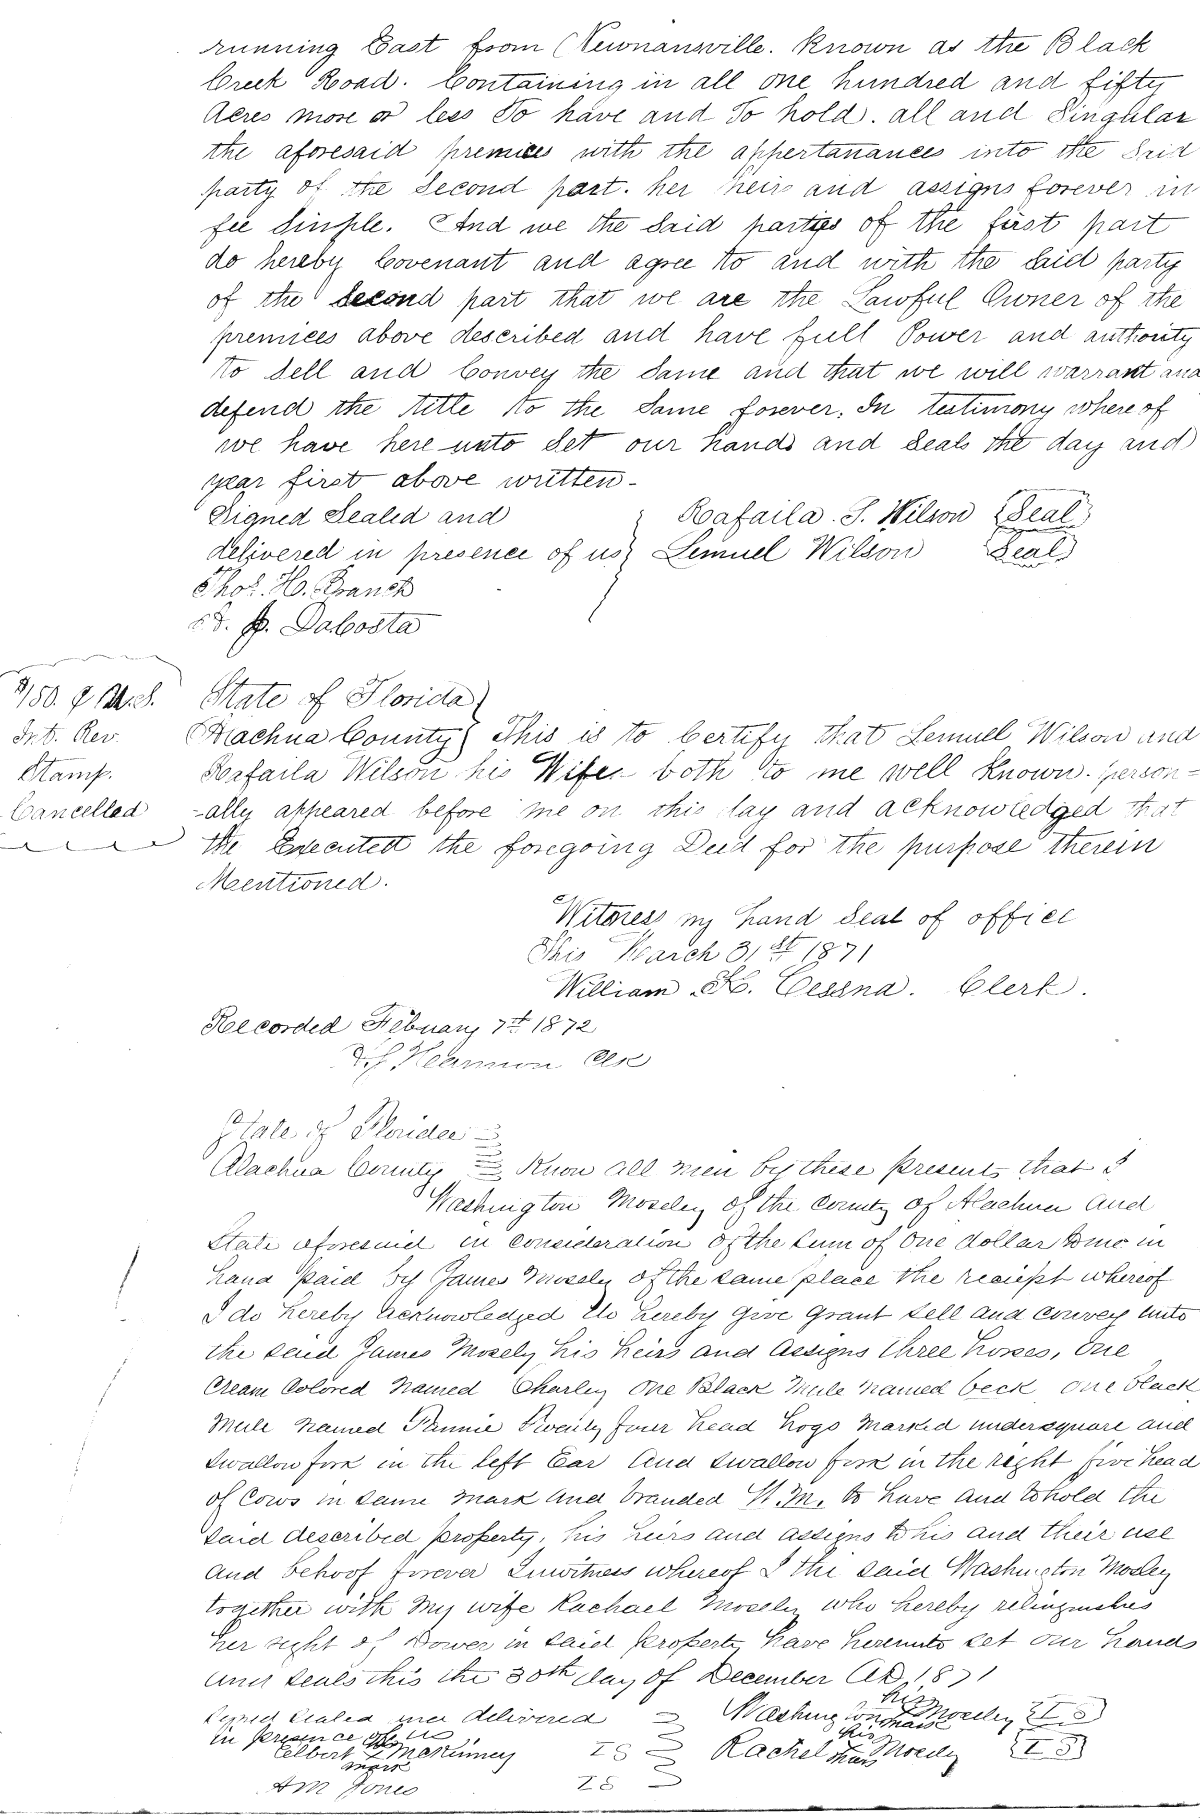 running East from Newnansville. Known as the Black
Creek Road. Containing in all one hundred and fifty
Acres more or less To have and To hold. all and Singular
the aforesaid premices with the appertanances into the Said
party of the Second part. her heirs and assigns forever in
fee Simple. And we the Said parties of the first part
do hereby Covenant and agree to and with the Said party
of the Second part that we are the Lawful Owner of the
premices above described and have full Power and authority
to Sell and Convey the Same and that we will warrant and
defend the title to the Same forever. In testimony where of
we have here unto Set our hands and Seals the day and
year first above written-
Signed Sealed and Rafaila. S. Wilson Seal
delivered in presence of us Lemuel Wilson Seal
Thos. H. Branch
DaCosta
$150. of U.S.
Int. Rev.
Stamp.
Cancelled
State of Florida
Alachua County This is to Certify that Lemuel Wilson and
Rafaila Wilson his Wife both to me well Known. person=
-ally appeared before me on this day and acknowledged that
the Executed the foregoing Deed for the purpose therein
Mentioned.
Witness my hand Seal of office
This March 31st 1871
William K. Cessna. Clerk.
Recorded February 7th 1872
Clk
State of Florida
Alachua County Know all men by these presents that I
Washington Moseley of the County of Alachua and
State aforesaid in consideration of the sum of one dollar to me in
hand paid by James Mosely of the same place the reciept whereof
I do hereby acknowledged do hereby give grant sell and convey unto
the said James Mosely his heirs and assigns three horses, One
Cream Colored named Charley one Black Mule named beck one black
Mule named Fannie Twenty four head hogs marked undersquare and
swallow fork in the left Ear and swallow fork in the right five head
of Cows in same mark and branded W.M. to have and to hold the
said described property, his heirs and assigns to his and their use
and behoof forever In witness whereof I the said Washington Mosley
together with my wife Rachael Mosely who hereby relinquishes
her right of Dower in said property have hereunto set our hands
and seals this the 30th day of December AD, 1871
Signed sealed and delivered Washington his mark Moseley L S
in presence of us
Elbert his mark McKinney L S Rachel her mark Mosely L S
A M Jones L S